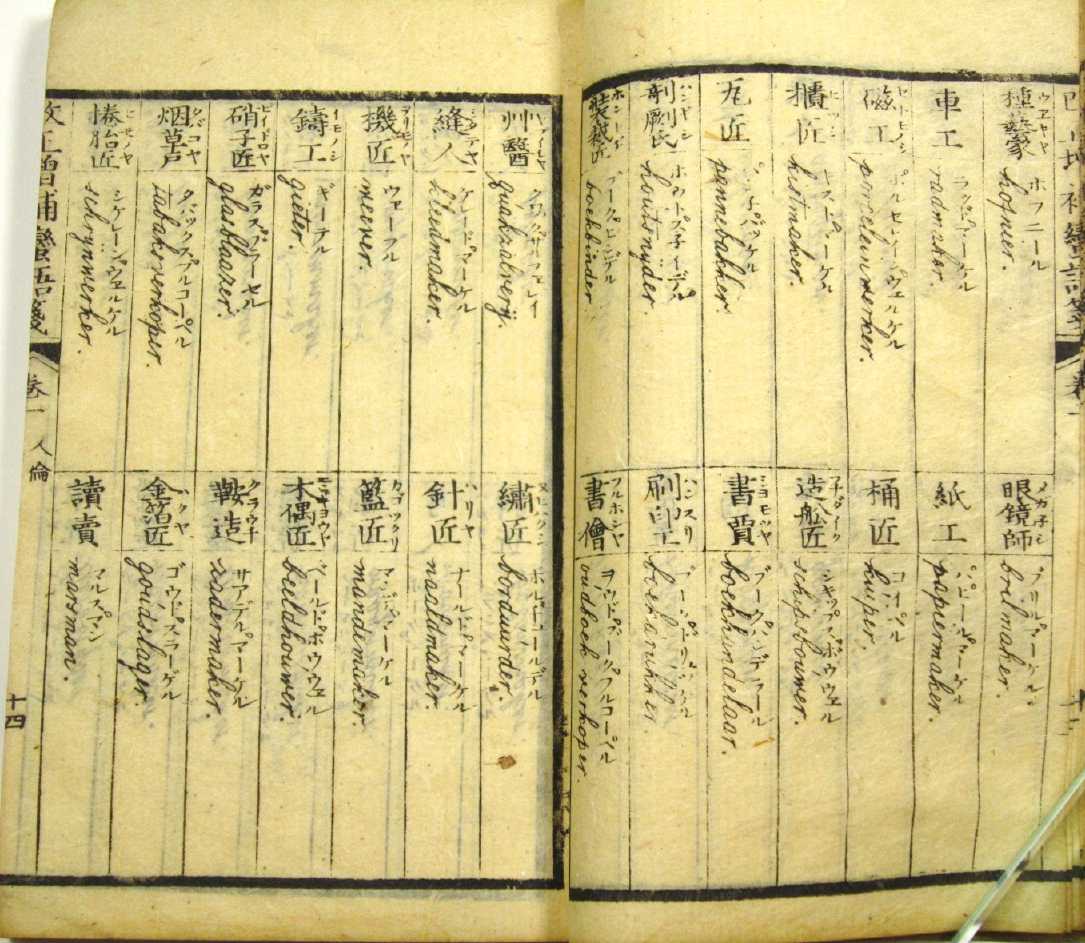 種藝家
ホフニール
hofnier.
車工
ラタマーケル
radmaker.
磁工
ポルセレーンウェルケル
porceleinwerker.
櫃匠
kistmaker.
瓦匠
pannebakker
剞劂氏
houtsnyder
装裱匠
boekbinder
眼鏡師
ブリルマーケル
brilmaker.
紙工
パピールマーケル
papiermaker.
桶匠
コイペル
kuiper.
造舩匠
シキップボウウェル
schipsbouwer.
書賈
ブークハンデラール
boekhandelaar.
刷印工
ハンスリ
書僧
フルホンヤ
ヲウドブークフルコーペル
oudboek verkoper.
艸醫
クワクザルフェレイ
quakzalverij.
縫人
ケレードマーケル
kleedmaker.
機匠
ヲリモノヤ
ウェーフル
wever.
鑄工
イモノシ
ギーテル
gieter.
硝子匠
ビイドロヤ
ガラスブラーセル
glasblaazer.
烟草戸
タバコヤ
タバックスフルコーペル
tabaksverkoper.
捲胎匠
シケレーンウェルケル
schrynwerker.
繡匠
ボルドールデル
borduurder.
針匠
ハリヤ
ナールドマーケル
naaldmaker.
籃匠
カゴツクリ
マンデマーケル
mandemaker.
木偶匠
ニンキヨウヤ
ベールドホウウェル
beeldhouwer.
鞍造
サアデルマーケル
sadermaker.
金箔匠
ハクヤ
ゴウドスラーゲル
goudslager.
讀賣
マルスマン
marsman.
改正増補蠻語箋
卷一
人倫
十四